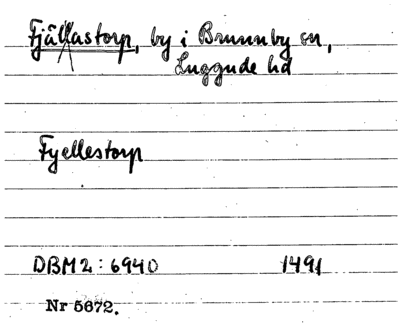 Fjällastorp, by i Brunnby sn,
Luggude hd
Fyellestorp
DBM2:6940 1491
Nr 5672.